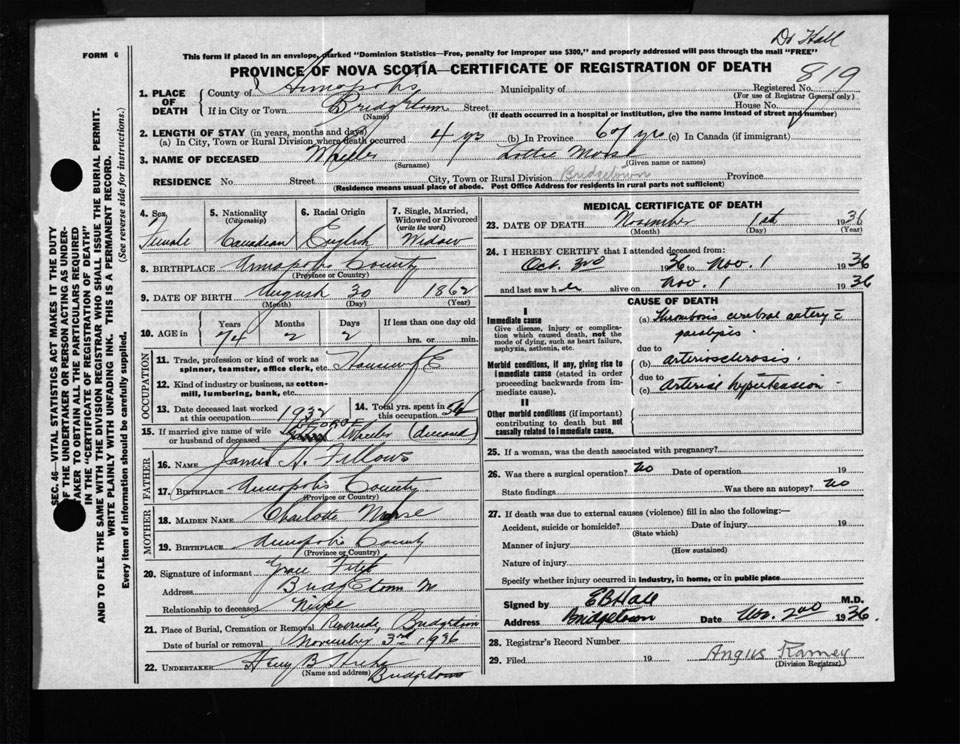 Dr Hall
FORM 6
This form if placed in an envelope, marked "Dominion Statistics—Free, penalty for improper use $300," and properly addressed will pass through the mail "FREE"
PROVINCE OF NOVA SCOTIA—CERTIFICATE OF REGISTRATION OF DEATH
819
1. PLACE OF DEATH
County of Annapolis Municipality of Registered No.
(For use of Registrar General only)
If in City or Town Bridgetown Street House No.
(Name) (If death occurred in a hospital or institution, give the name instead of street and number)
2. LENGTH OF STAY (in years, months and days)
(a) In City, Town or Rural Division where death occurred 4 yrs (b) In Province 67 yrs (c) In Canada (if immigrant)
3. NAME OF DECEASED Wheeler Lottie Morse
(Surname) (Given name or names)
RESIDENCE No. Street City, Town or Rural Division Bridgetown Province
(Residence means usual place of abode. Post Office Address for residents in rural parts not sufficient)
4. Sex Female
5. Nationality (Citizenship) Canadian
6. Racial Origin English
7. Single, Married, Widowed or Divorced (write the word) Widow
8. BIRTHPLACE Annapolis County
(Province or Country)
9. DATE OF BIRTH August 30 1862
(Month) (Day) (Year)
10. AGE in Years Months Days If less than one day old
74 2 2 hrs. or min.
OCCUPATION
11. Trade, profession or kind of work as spinner, teamster, office clerk, etc. Housewife
12. Kind of industry or business, as cotton-mill, lumbering, bank, etc.
13. Date deceased last worked at this occupation 1932
14. Total yrs. spent in this occupation 56
15. If married give name of wife or husband of deceased George Wheeler (deceased)
FATHER
16. NAME James H. Fellows
17. BIRTHPLACE Annapolis County
(Province or Country)
MOTHER
18. MAIDEN NAME Charlotte Morse
19. BIRTHPLACE Annapolis County
(Province or Country)
20. Signature of informant Grace Fitch
Address Bridgetown
Relationship to deceased Niece
21. Place of Burial, Cremation or Removal Riverside, Bridgetown
Date of burial or removal November 3rd, 1936
22. UNDERTAKER B. Hicks
(Name and address) Bridgetown
MEDICAL CERTIFICATE OF DEATH
23. DATE OF DEATH November 1st 1936
(Month) (Day) (Year)
24. I HEREBY CERTIFY that I attended deceased from:
Oct. 3rd 1936 to Nov. 1 1936
and last saw her alive on Nov. 1 1936
CAUSE OF DEATH
I
Immediate cause
Give disease, injury or complication which caused death, not the mode of dying, such as heart failure, asphyxia, asthenia, etc.
Morbid conditions, if any, giving rise to immediate cause (stated in order proceeding backwards from immediate cause).
II
Other morbid conditions (if important) contributing to death but not causally related to immediate cause.
(a) Thrombosis cerebral artery c̄
paralysis.
due to
(b) arteriosclerosis.
due to
(c) Arterial hypertension
25. If a woman, was the death associated with pregnancy?
26. Was there a surgical operation? No Date of operation 19
State findings Was there an autopsy? No
27. If death was due to external causes (violence) fill in also the following:—
Accident, suicide or homicide? Date of injury 19
(State which)
Manner of injury
(How sustained)
Nature of injury
Specify whether injury occurred in industry, in home, or in public place
Signed by E B Hall M.D.
Address Bridgetown Date Nov. 2nd 1936.
28. Registrar's Record Number
29. Filed 19 Angus Ramey
(Division Registrar)
SEC. 46—VITAL STATISTICS ACT MAKES IT THE DUTY
OF THE UNDERTAKER OR PERSON ACTING AS UNDER-
TAKER TO OBTAIN ALL THE PARTICULARS REQUIRED
IN THE "CERTIFICATE OF REGISTRATION OF DEATH"
AND TO FILE THE SAME WITH THE DIVISION REGISTRAR WHO SHALL ISSUE THE BURIAL PERMIT.
WRITE PLAINLY WITH UNFADING INK. THIS IS A PERMANENT RECORD.
Every item of information should be carefully supplied. (See reverse side for instructions.)